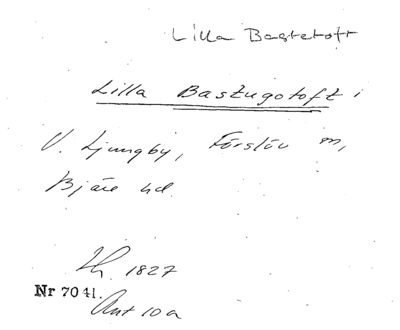 Lilla Bastetoft
Lilla Bastugotoft i
V. Ljungby, Förslöv m,
Bjäre hd.
Lh. 1827
Nr 7041.
Ant 10a